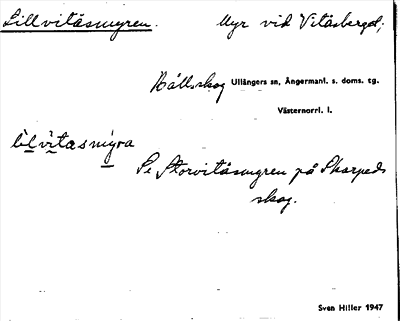 Lillvitåsmyren. Myr vid Vitåsberget;
Kålls.skog Ullångers sn, Ångermanl. s. doms. tg.
Västernorrl. l.
lìlvìtasmýra
Se Storvitåsmyren på Skarpeds
skog.
Sven Hiller 1947